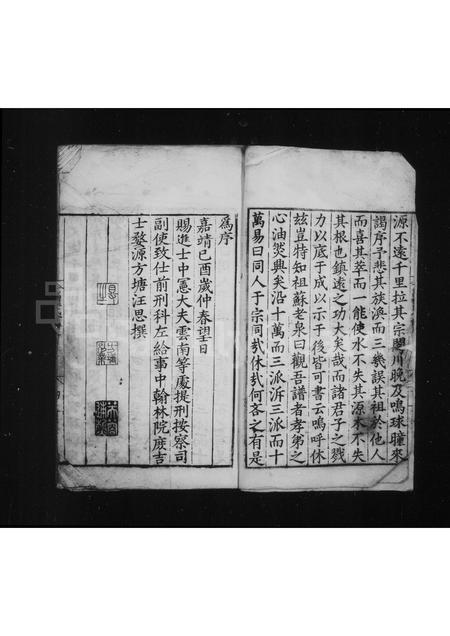 源不遠千里拉其宗閬川晚及鳴珠瞳來
謁序予悲其族渙而三幾誤其祖於他人
而喜其萃而一能使水不失其源木不失
其根也鎮遠之功大矣哉而諸君子之戮
力以底于成以示于後皆可書云嗚呼休
玆豈特知祖蘇老泉曰觀吾譜者孝弟之
心油然興矣沿十萬而三派泝三派而十
萬易曰同人于宗同㢤休㢤何吝之有是
為序
嘉靖己酉歲仲春望日
賜進士中憲大夫雲南等處提刑按察司
副使致仕前刑科左給事中翰林院庶吉
士婺源方塘汪思撰